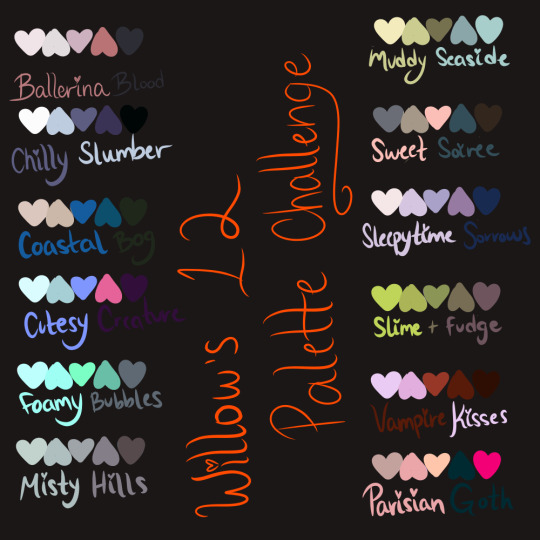 Ballerina Blood
Chilly Slumber
Coastal Bog
Cutesy Creature
Foamy Bubbles
Misty Hills
Willow's 12
Palette Challenge
Muddy Seaside
Sweet Soiree
Sleepytime Sorrows
Slime + Fudge
Vampire Kisses
Parisian Goth